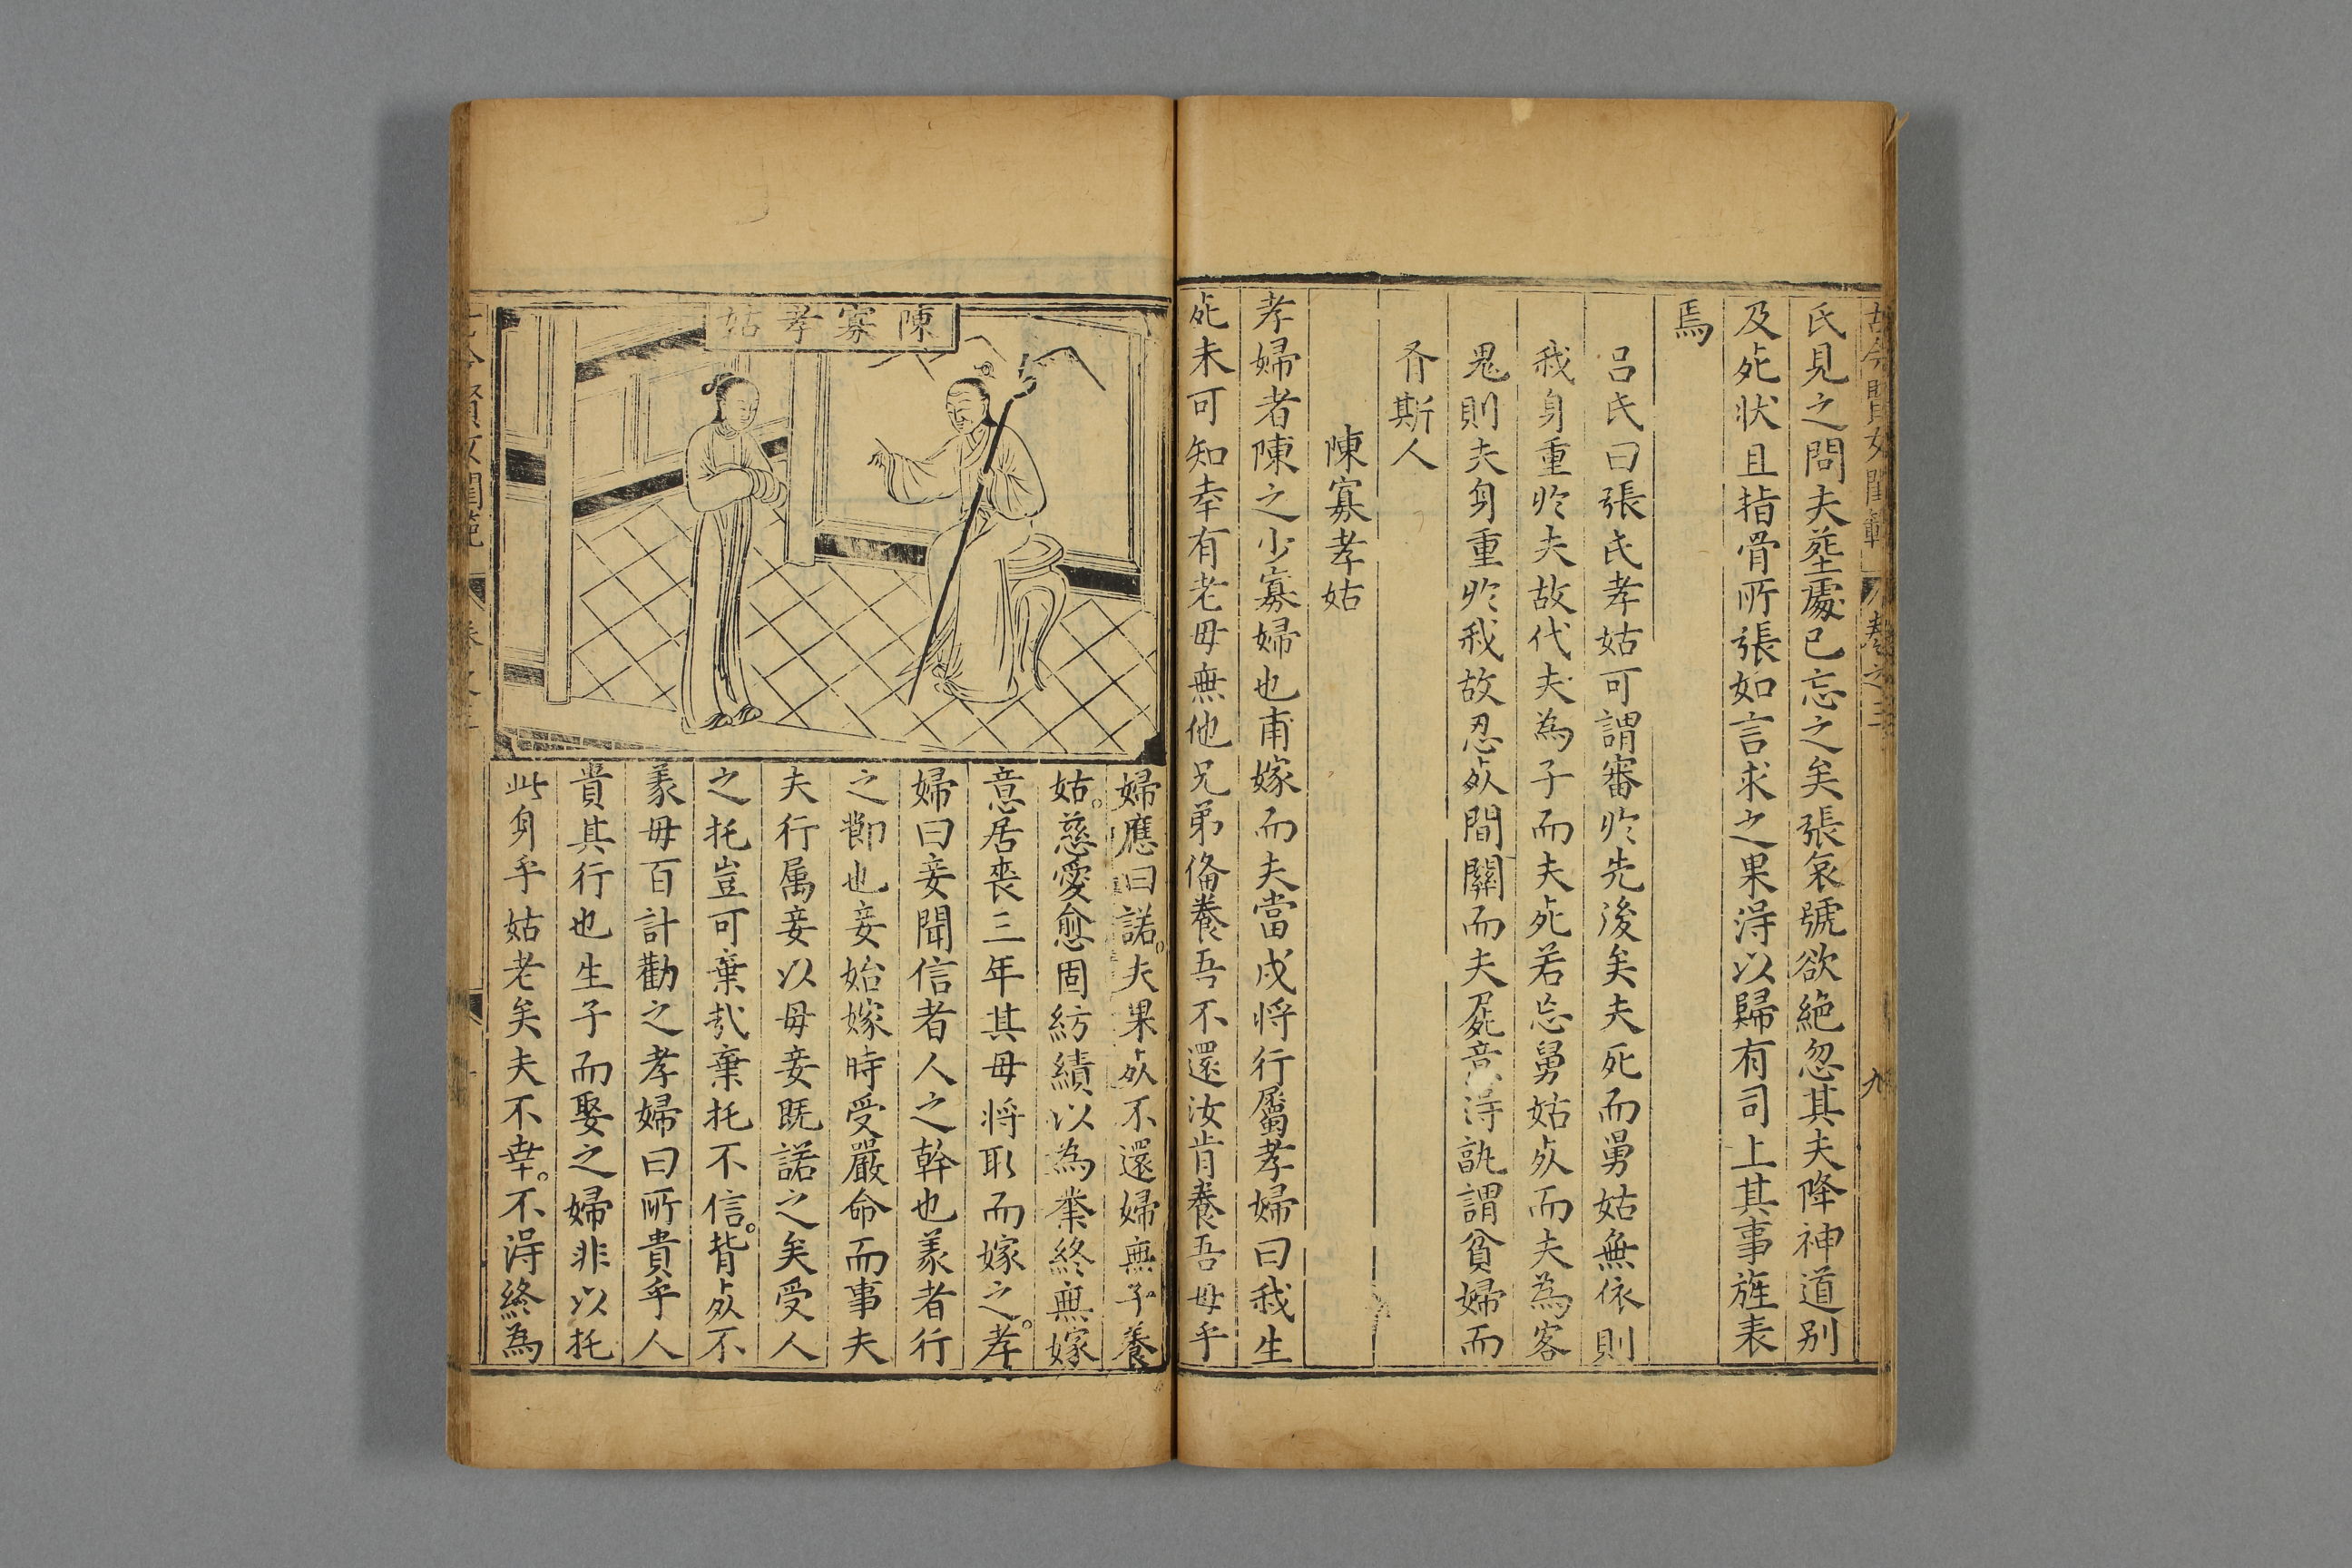 古今賢女閨範 卷之三 九
氏見之問夫塟處已忘之矣張哀號欲絶忽其夫降神道别
及死状且指骨所張如言求之果淂以歸有司上其事旌表
焉
吕氏曰張氏孝姑可謂審扵先後矣夫死而舅姑無依則
我身重扵夫故代夫為子而夫死若忘舅姑歿而夫為客
鬼則夫身重扵我故忍死間關而夫屍
淂孰謂貧婦而
斉斯人
陳寡孝姑
孝婦者陳之少寡婦也甫嫁而夫當戍将行屬孝婦曰我生
死未可知幸有老母無他兄弟俻養吾不還汝肯養吾母乎
陳寡孝姑
婦應曰諾。夫果死不還婦無子養
姑。慈愛愈固紡績以為業終無嫁
意居喪三年其母将取而嫁之。孝
婦曰妾聞信者人之幹也義者行
之節也妾始嫁時受嚴命而事夫
夫行属妾以母妾既諾之矣受人
之托豈可棄哉棄托不信。背死不
義母百計勸之孝婦曰所貴乎人
貴其行也生子而娶之婦非以托
此身乎姑老矣夫不幸。不淂終為
古今賢女閨範 卷之三